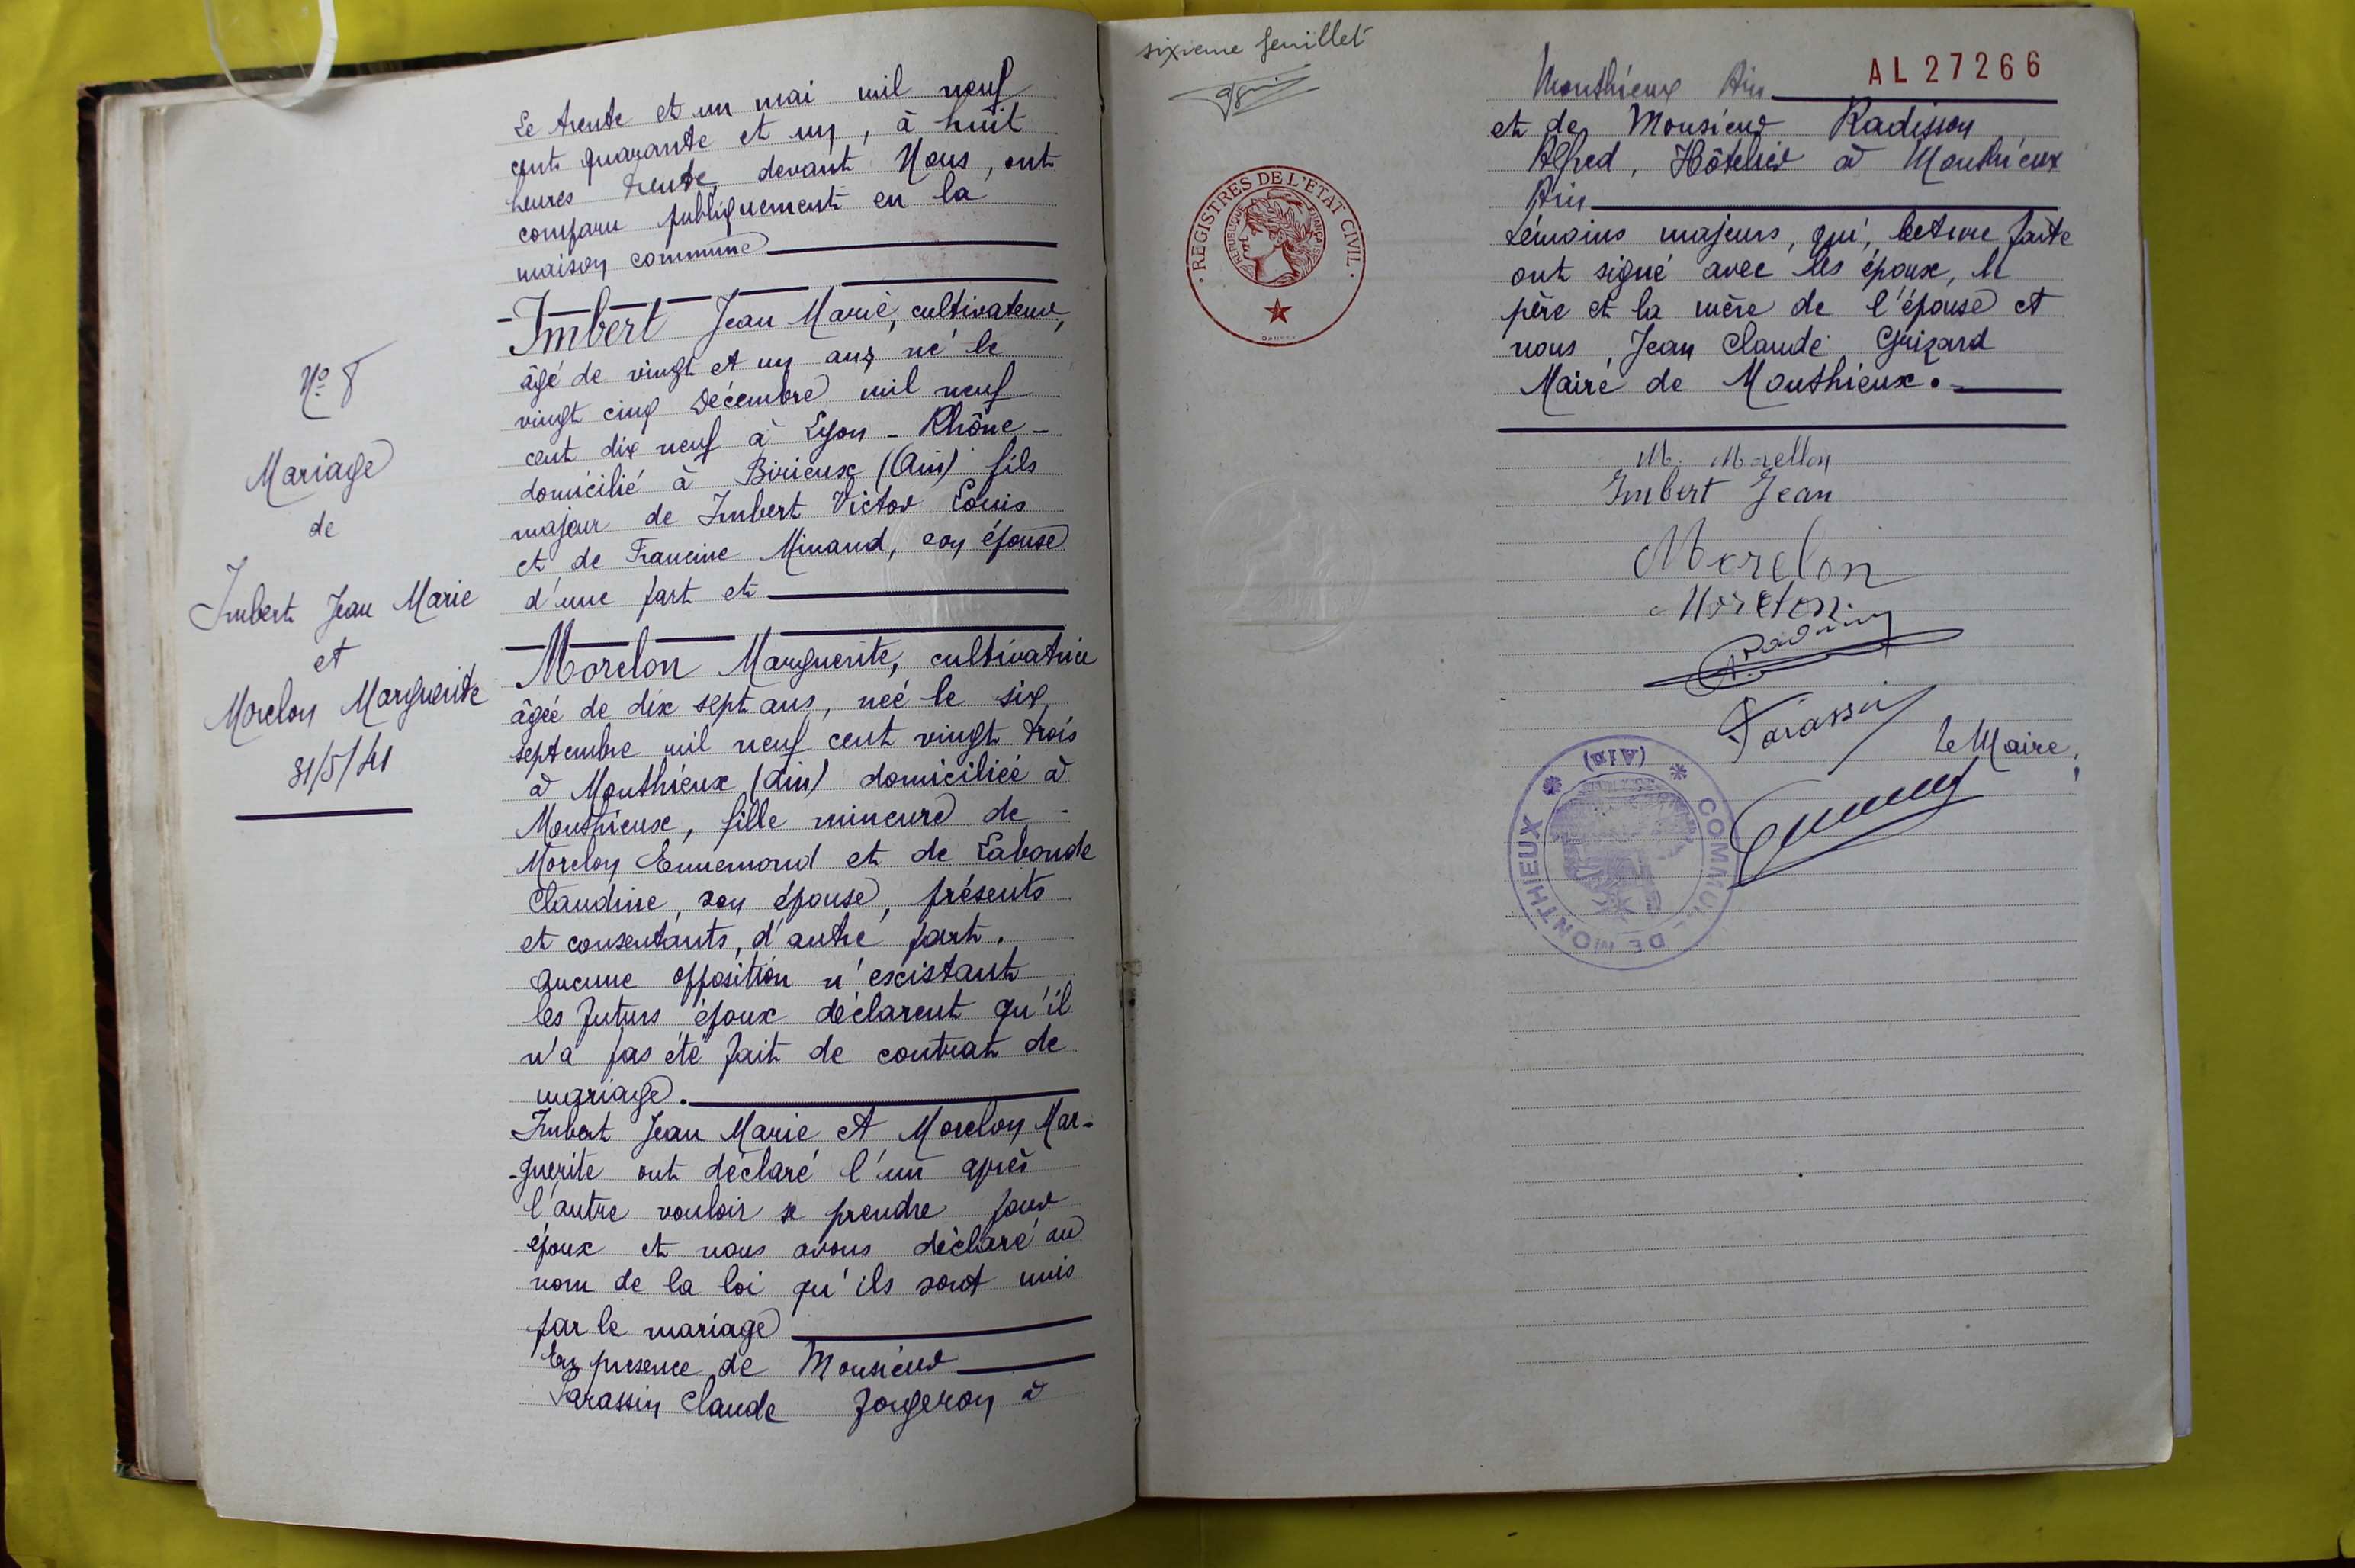 N° 8
Mariage
de
Imbert Jean Marie
et
Morelon Marguerite
31/5/41
Le trente et un mai mil neuf
cent quarante et un, à huit
heures trente, devant Nous, ont
comparu publiquement en la
maison commune
Imbert Jean Marie, cultivateur,
âgé de vingt et un ans, né le
vingt cinq Décembre mil neuf
cent dix neuf à Lyon - Rhône -
domicilié à Birieux (Ain) fils
majeur de Imbert Victor Louis
et de Francine Minaud, son épouse
d'une part et
Morelon Marguerite, cultivatrice
âgée de dix sept ans, née le six
septembre mil neuf cent vingt trois
à Monthieux (Ain) domiciliée à
Monthieux, fille mineure de -
Morelon Ennemond et de Labonde
Claudine, son épouse, présents
et consentants, d'autre part.
Aucune opposition n'existant
les futurs époux déclarent qu'il
n'a pas été fait de contrat de
mariage.
Imbert Jean Marie et Morelon Mar-
-guerite ont déclaré l'un après
l'autre vouloir se prendre pour
époux et nous avons déclaré au
nom de la loi qu'ils sont unis
par le mariage
En presence de Monsieur
Sarassin Claude forgeron à
sixieme feuillet
AL 27266
REGISTRES DE L'ETAT CIVIL
REPUBLIQUE FRANÇAISE
Monthieux Ain
et de Monsieur Radisson
Alfred, Hôtelier à Monthieux
Ain
témoins majeurs, qui, lecture faite
ont signé avec les époux, le
père et la mère de l'épouse et
nous, Jean Claude Grizard
Maire de Monthieux.
M. Morellon
Imbert Jean
Morelon
Morelon
Sarassin
Le Maire,
COMMUNE DE MONTHIEUX
(Ain)